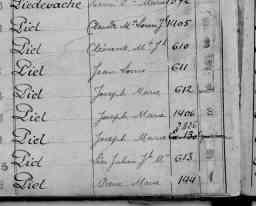 Piedevache Marie 1342
Piel Claude Mle Louis J 1405
Piel Clément Me Jh 610
Piel Jean Louis 611
Piel Joseph Marie 612
Piel Joseph Marie 1406
Piel Joseph Marie
Piel Julien Jh Me 613
Piel Marie 144